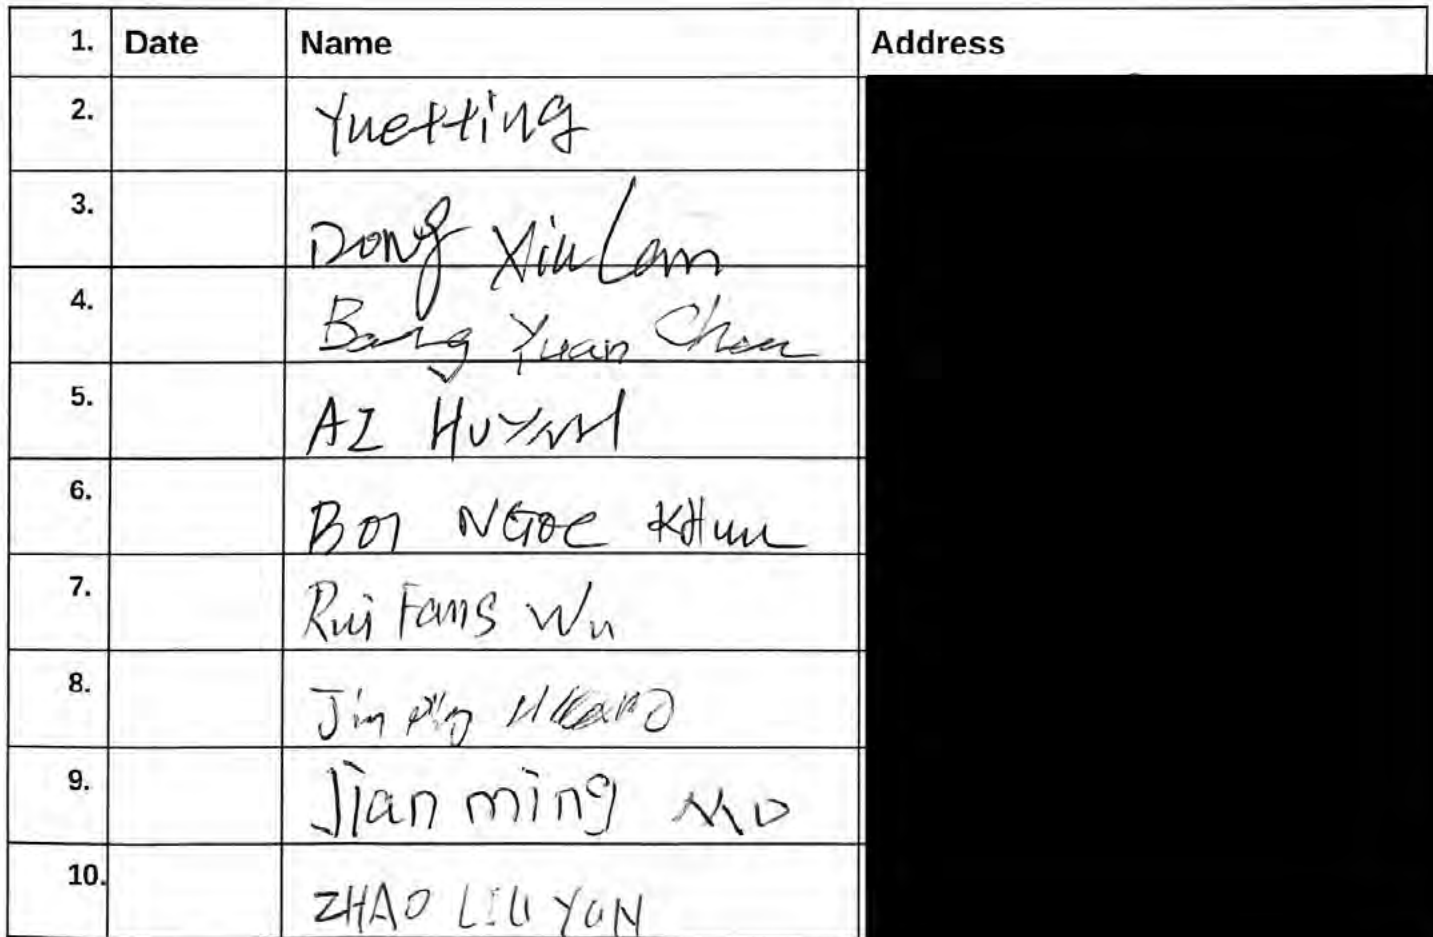 1. Date Name Address
2. Yuetting
3. Dong Xiu Lam
4. Bang Yuan Chen
5. AI HUYNH
6. BOI NGOC KHUU
7. Rui Fang Wu
8. Jin Ping
9. Jian ming MO
10. ZHAO LILI YUN